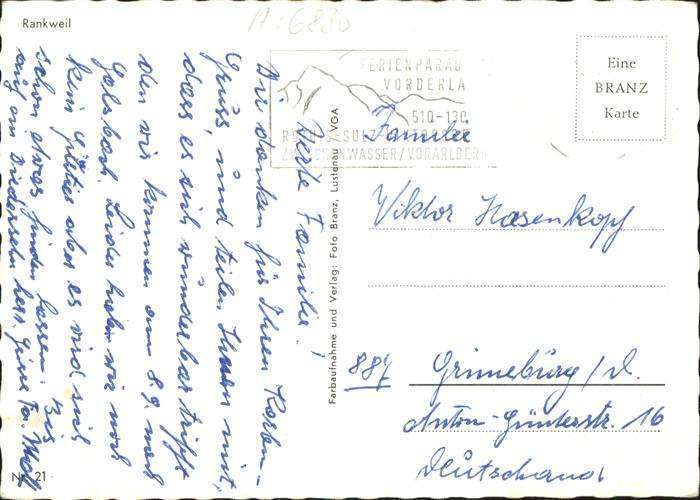 Rankweil
A: 6830
FERIENPARAD
VORDERLA
510-130
ZWISCHENWASSER/VORARLBERG
Eine
BRANZ
Karte
Werte Familie!
Wir danken für Ihren Karten-
gruss, und teilen Ihnen mit,
dass es sich wunderbar trifft
den wir kommen am 8.9. nach
Leider haben wir noch
kein aber es wird sich
schon etwas finden lassen. Bis
auf ein Wiedersehn herz. Fam.
Nr. 21
Farbaufnahme und Verlag: Foto Branz, Lustenau VGA
Familie
Viktor Hasenkopf
887 Grünebürg/D.
Anton-Günterstr. 16
Deutschand